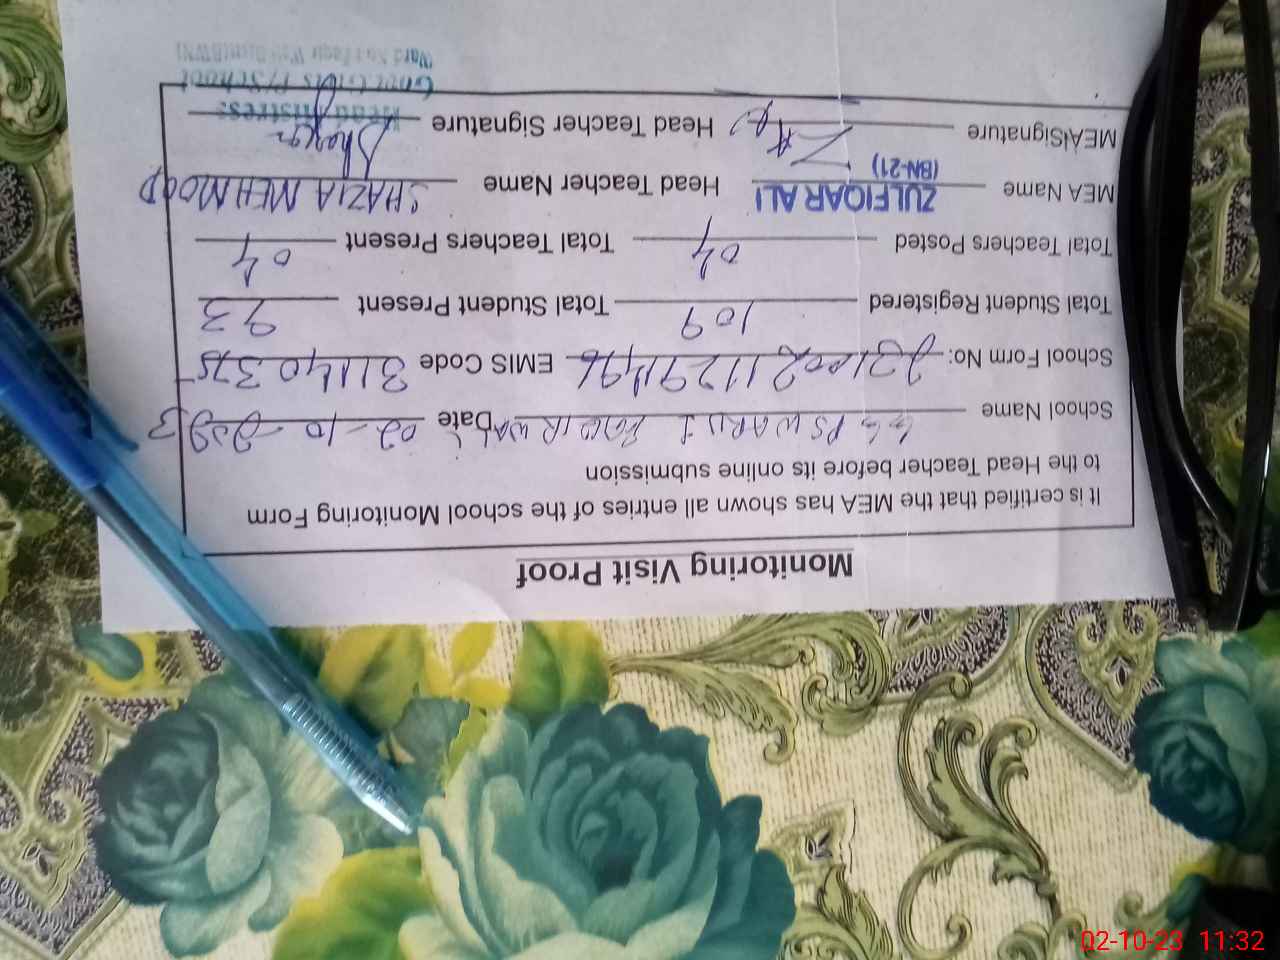 Monitoring Visit Proof
It is certified that the MEA has shown all entries of the school Monitoring Form
to the Head Teacher before its online submission
School Name GGPS WARD 1 FAQIR WALI Date 02-10-2023
School Form No: EMIS Code 31140375
Total Student Registered 109 Total Student Present 93
Total Teachers Posted 04 Total Teachers Present 04
MEA Name ZULFIQAR ALI Head Teacher Name SHAZIA MEHMOOD
(BN-21)
MEA Signature Head Teacher Signature
Head Mistress:
Govt Girls P/School
Ward No
02-10-23 11:32